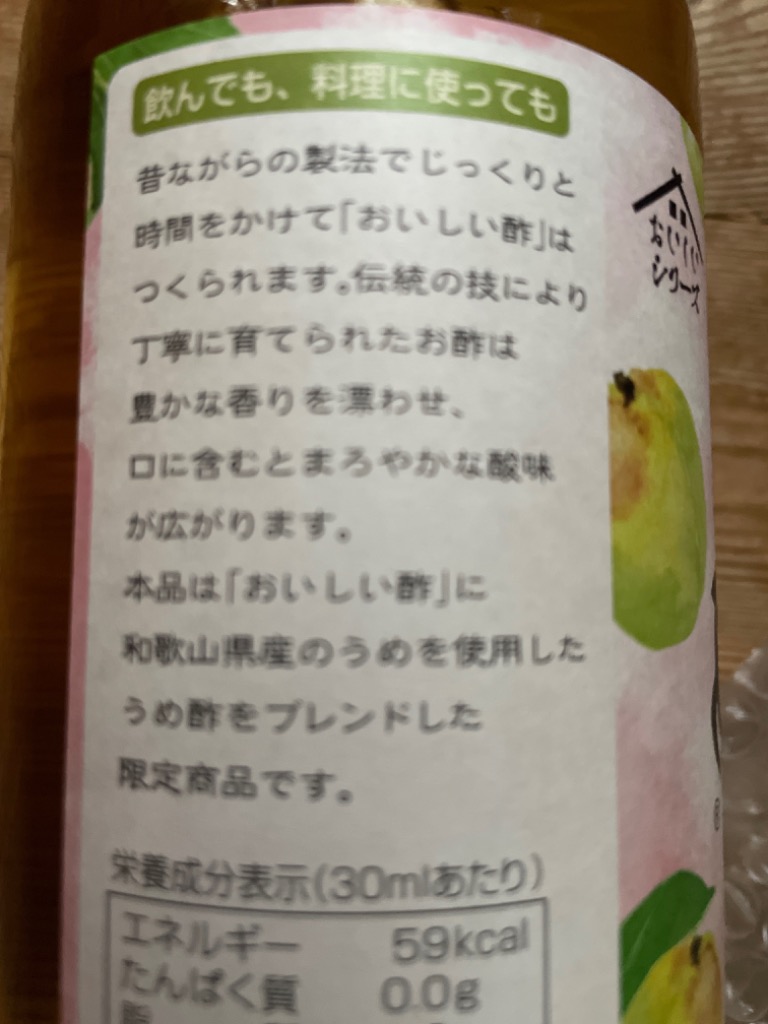 飲んでも、料理に使っても
昔ながらの製法でじっくりと
時間をかけて「おいしい酢」は
つくられます。伝統の技により
丁寧に育てられたお酢は
豊かな香りを漂わせ、
口に含むとまろやかな酸味
が広がります。
本品は「おいしい酢」に
和歌山県産のうめを使用した
うめ酢をブレンドした
限定商品です。
栄養成分表示(30mlあたり)
エネルギー 59kcal
たんぱく質 0.0g
おいしい
シリーズ